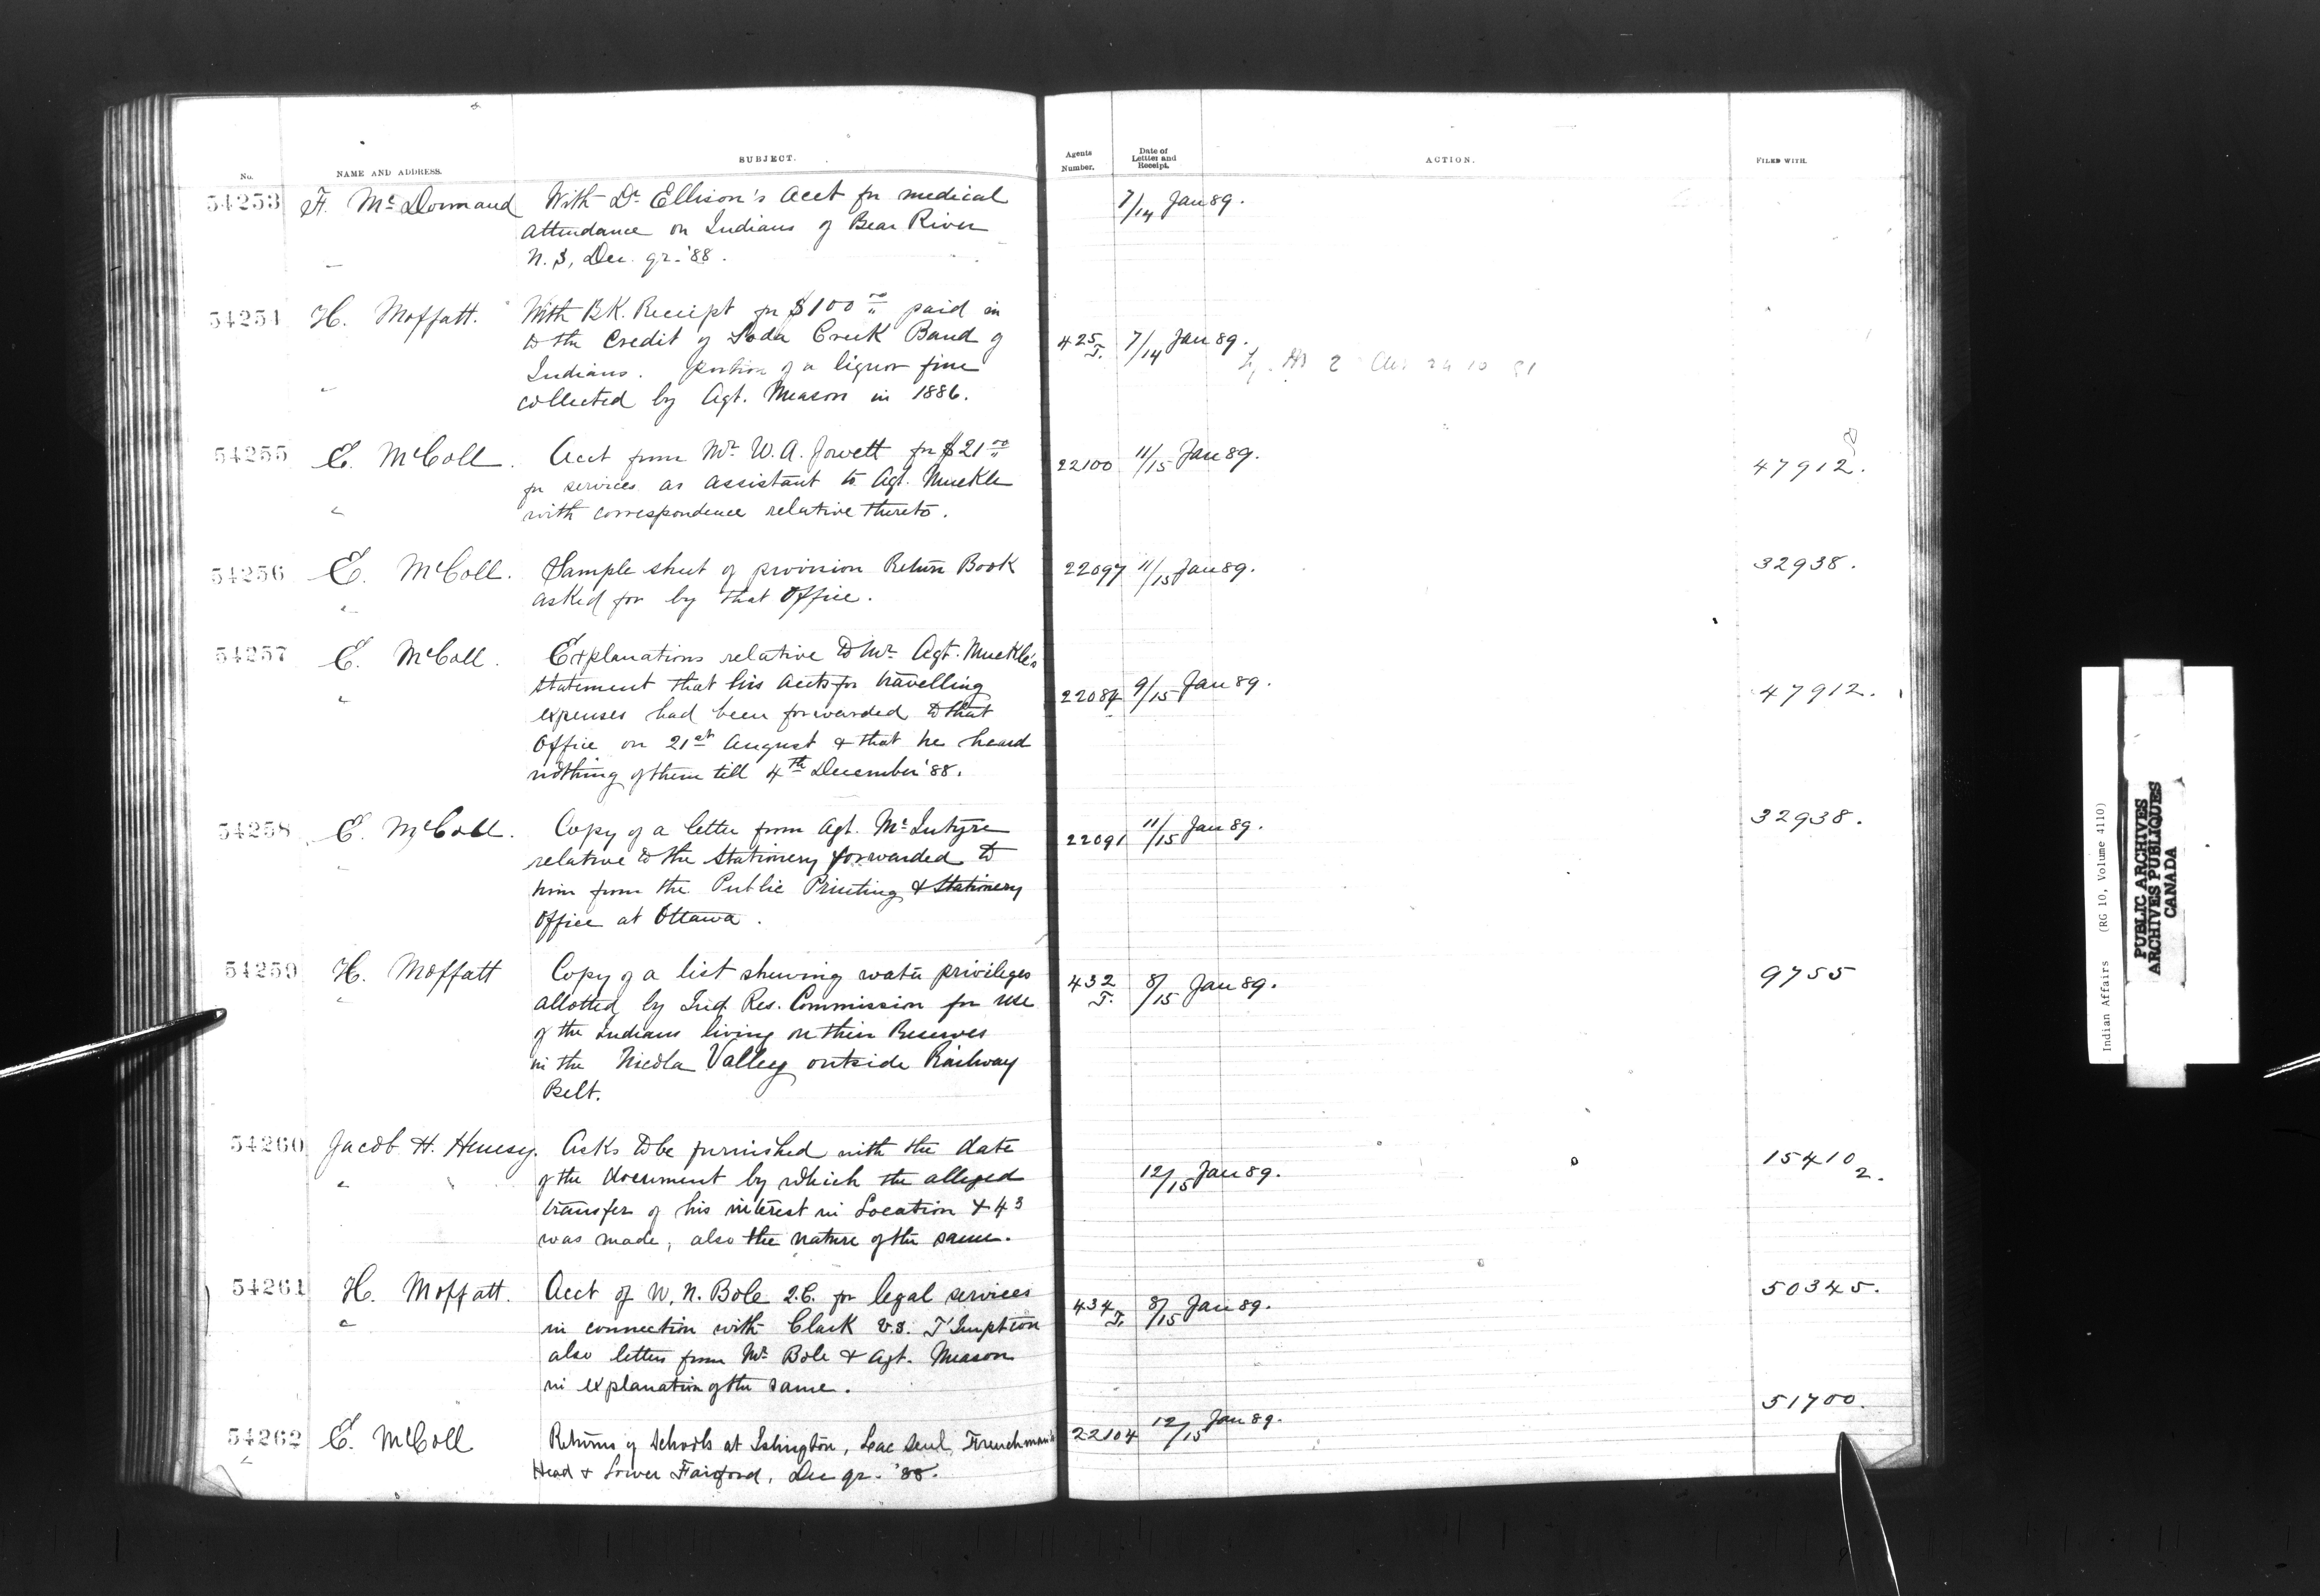 No.
NAME AND ADDRESS.
SUBJECT.
Agents Number.
Date of Letter and Receipt.
ACTION.
FILED WITH.
54253 F. McDormand With Dr. Ellison's acct for medical 7/14 Jan 89.
attendance on Indians of Bear River
N.S, Dec. qr. '88.
54254 H. Moffatt. With BK. Receipt for $100 00 paid in
to the Credit of Soda Creek Band of 425 T. 7/14 Jan 89.
Indians. portion of a liquor fine
collected by Agt. Meason in 1886.
54255 E. McColl. Acct from Mr. W. A. Jowett for $21 00 22100 11/15 Jan 89. 47912.
for services as assistant to Agt. Muckle
with correspondence relative thereto.
54256 E. McColl. Sample sheet of provision Return Book 22097 11/15 Jan 89. 32938.
asked for by that Office.
54257 E. McColl. Explanations relative to Mr. Agt. Muckle's
statement that his accts for travelling 22084 9/15 Jan 89. 47912.
expenses had been forwarded to that
Office on 21st August & that he heard
nothing of them till 4th December '88.
54258 E. McColl. Copy of a letter from Agt. McIntyre 22091 11/15 Jan 89. 32938.
relative to the Stationery forwarded to
him from the Public Printing & Stationery
Office at Ottawa.
54259 H. Moffatt Copy of a list shewing water privileges 432 T. 8/15 Jan 89. 9755
allotted by Ind. Res. Commission for use
of the Indians living on their Reserves
in the Nicola Valley outside Railway
Belt.
54260 Jacob H. Henesy. Asks to be furnished with the date
of the document by which the alleged 12/15 Jan 89. 15410 2.
transfer of his interest in Location
was made, also the nature of the same.
54261 H. Moffatt. Acct of W. N. Bole Q.C. for legal services 434 T. 8/15 Jan 89. 50345.
in connection with Clark v.s.
also letters from Mr. Bole & Agt. Meason
in explanation of the same.
54262 E. McColl Returns of Schools at Islington, Lac Seul, Frenchman's 22104 12/15 Jan 89. 51700.
Head & Lower Fairford, Dec qr. '88.
Indian Affairs (RG 10, Volume 4110)
PUBLIC ARCHIVES
ARCHIVES PUBLIQUES
CANADA